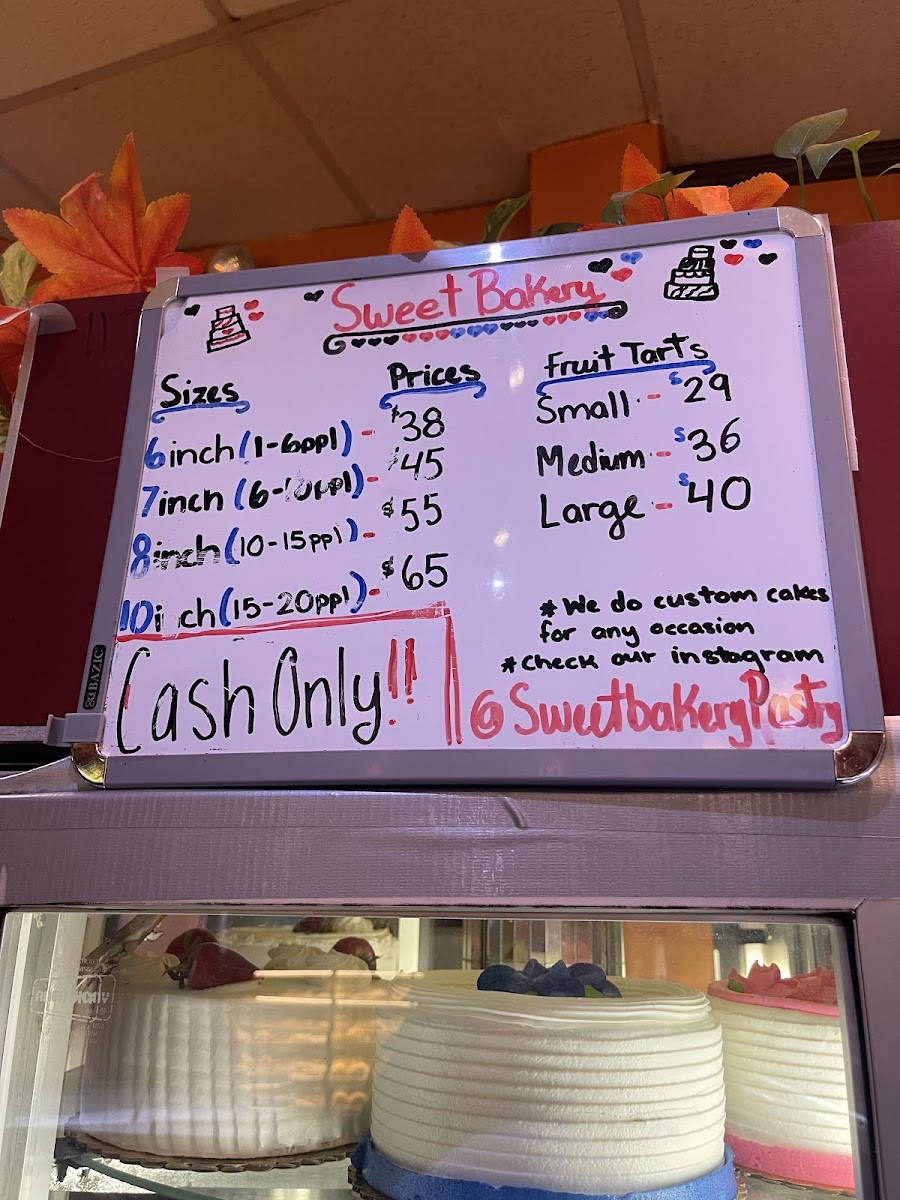 Sweet Bakery
Sizes
Prices
6inch (1-6ppl) - $38
7inch (6-10ppl) - $45
8inch (10-15ppl) - $55
10inch (15-20ppl) - $65
Cash Only!!
Fruit Tarts
Small - $29
Medium - $36
Large - $40
* We do custom cakes
for any occasion
* Check our instagram
@SweetbakeryPastry
BAZIC